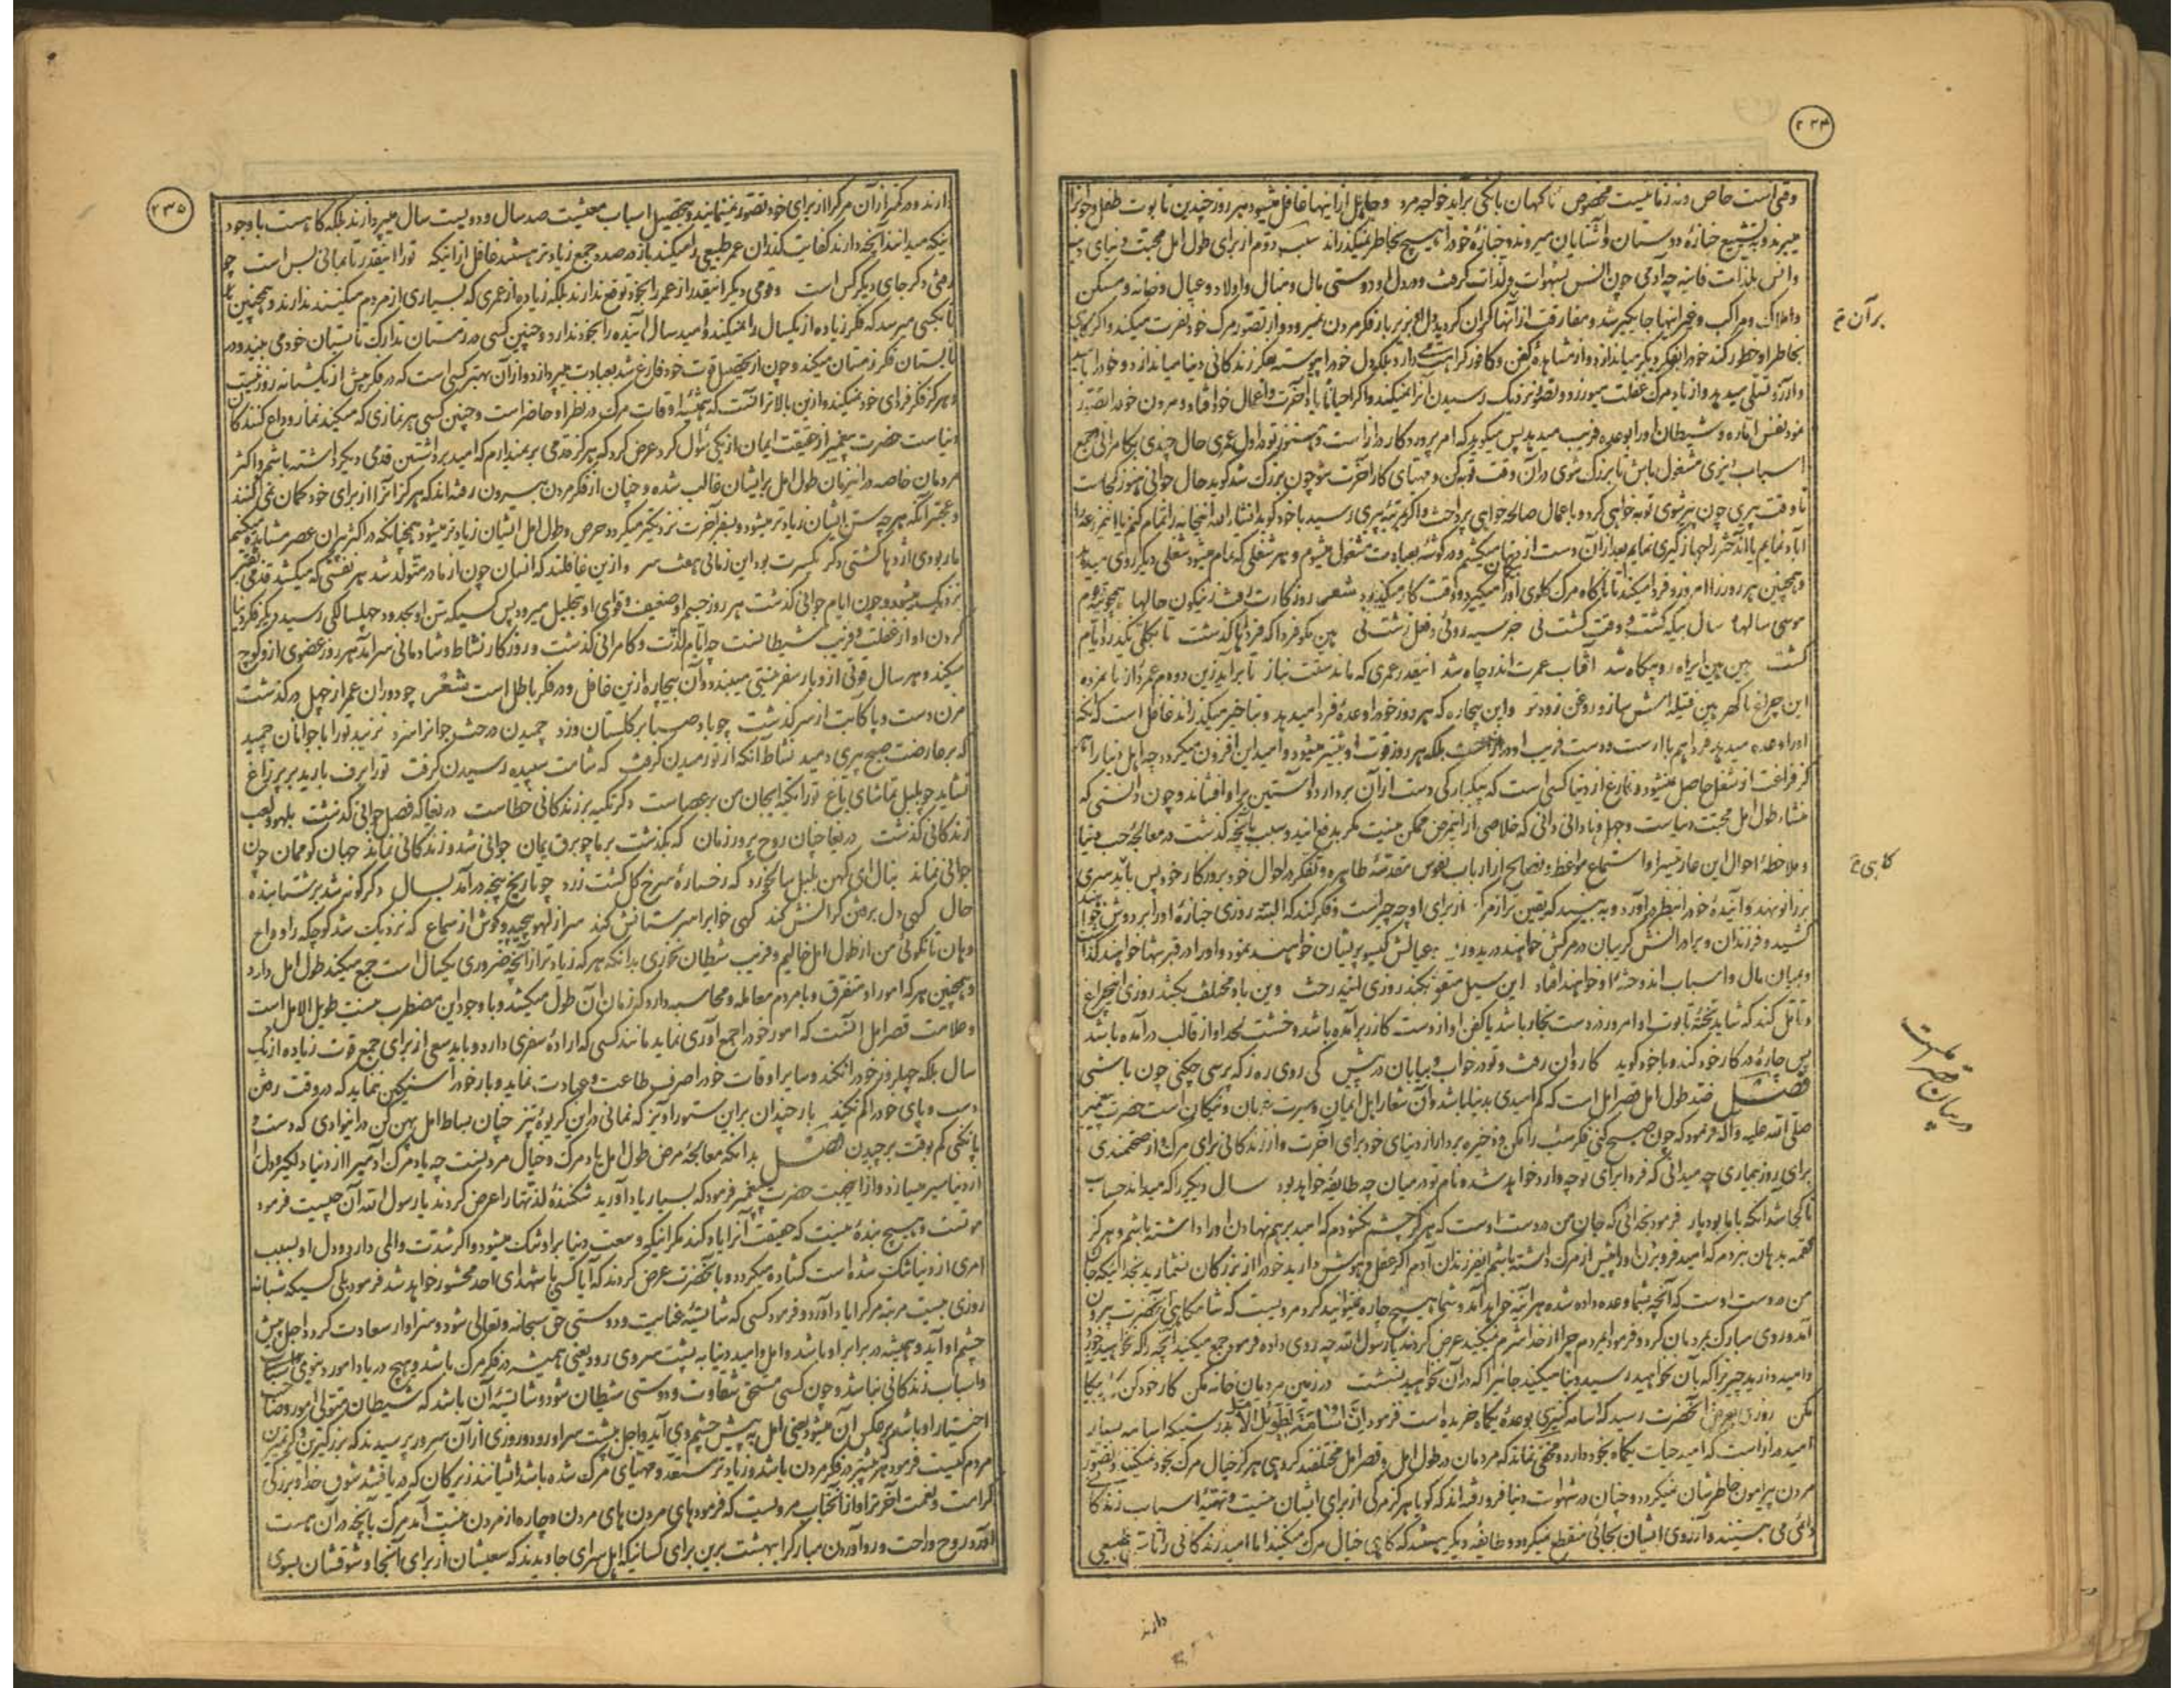 ۲۳۴
وقتی است خاص و نه زمانیست مخصوص ناگهان بانگی برآید خواجه مرد و جاهل از اینها غافل میشود هر روز چندین تابوت طفل و جوان را
میبرند و به تشییع جنازه دوستان و آشنایان میروند و جنازه خود را هیچ بخاطر نمیگذراند سبب دوم از برای طول امل محبت دنیای
و انس بلذات فانیه چه آدمی چون انس بشهوات و لذات گرفت و در دل او دوستی مال و منال و اولاد و عیال و خانه و مسکن
و املاک و مراکب و غیر اینها جایگیر شد و مفارقت از آنها گران گردید دل او زیر بار فکر مردن نمیرود و از تصور مرگ خود نفرت میکند و اگر گاهی
بخاطر او خطور کند خود را بفکر دیگر میاندازد و از مشاهده کفن و کافور کراهت دارد بلکه دل خود را پیوسته بفکر زندگانی دنیا میاندازد و خود را
و آرزو تسلی میدهد و از یاد مرگ غفلت میورزد و تصور نزدیک رسیدن آنرا نمیکند و اگر احیانا بیاد آخرت و اعمال خود افتاد و مردن خود را تصور
نمود نفس اماره و شیطان او را بوعده فریب میدهد پس میگوید که امر پروردگار دراز است و هنوز تو در اول عمری حال چندی بکامرانی و جمع
اسباب دنیوی مشغول باش تا بزرگ شوی در آن وقت توبه کن و مهیای کار آخرت شو چون بزرگ شد گوید حال جوانی هنوز کجاست
تا وقت پیری چون پیر شوی توبه خواهی کرد و باعمال صالحه خواهی پرداخت و اگر بمرتبه پیری رسید با خود گوید انشاء الله اینخانه را تمام کنم یا این مزرعه را
آباد نمایم یا دختر را جهازگیری نمایم بعد از آن دست از دنیا میکشم و در گوشه بعبادت مشغول میشوم و هر شغلی که تمام میشود شغلی دیگر روی میدهد
و همچنین هر روز را امروز و فردا میکند تا ناگاه مرگ گلوی او را میگیرد و وقت کار میگذرد شعر روزگارت رفت زینگون حالها
سالها سال بیگه گشت و وقت کشت نی جز سیه روئی و فعل زشت نی هین مگو فردا که فرداها گذشت تا بکلی نگذرد ایام
کشت هین هین ای راه رو بیگاه شد آفتاب عمرت اندر چاه شد اینقدر عمری که ماندستت بباز تا برآید زین دو دم عمر دراز تا نمرده
این چراغ با گهر هین فتیله اش ساز و روغن زودتر و این بیچاره که هر روز خود را وعده فردا میدهد و بتاخیر میگذراند غافل است که آنکه
او را وعده میدهد فردا هم با اوست و دست فریب او دراز است بلکه هر روز قوت او بیشتر میشود و امید این افزون میگردد چه اهل دنیا را
هرگز فراغت از شغل حاصل نمیشود و فارغ از دنیا کسی است که بیکبارگی دست از آن بردارد و آستین بر او افشاند و چون دانستی که
منشاء طول امل محبت دنیاست و جهل و نادانی دانی که خلاصی از اینمرض ممکن نیست مگر بدفع این دو سبب بآنچه گذشت در معالجه حب دنیا
و ملاحظه احوال این عاریت سرا و استماع مواعظ و نصایح از ارباب نفوس مقدسه طاهره و تفکر در احوال خود و روزگار خود پس باید سری
بزانو نهد و آینده خود را بنظر درآورد و به بیند که یقین تر از مرگ از برای او چه چیز است و فکر کند که البته روزی جنازه او را بر دوش خواهند
کشید و فرزندان و برادرانش گریبان در مرگش خواهند درید و عیالش گیسو پریشان خواهند نمود و او را در قبر تنها خواهند گذاشت
و میان مال و اسباب اندوخته او خواهند افتاد این سیل متفق بکند روزی این درخت وین باد مختلف بکشد روزی این چراغ
و تامل کند که شاید تخته تابوت او امروز در دست نجار باشد یا کفن او از دست گازر برآمده باشد و خشت لحد او از قالب درآمده باشد
پس چاره در کار خود کند و با خود گوید کاروان رفت و تو در خواب و بیابان در پیش کی روی ره ز که پرسی چکنی چون باشی
فصل ضد طول امل قصر امل است که کم امیدی بدنیا باشد و آن شعار اهل ایمان و سیرت و نیکان است حضرت پیغمبر
صلی الله علیه و آله فرمود که چون صبح کنی فکر شب را مکن و ذخیره بردار از دنیای خود برای آخرت و از زندگانی برای مرگ و از صحتمندی
برای روز بیماری چه میدانی که فردا برای تو چه وارد خواهد شد و نام تو در میان چه طایفه خواهد بود سال دیگر را که میداند حساب
تا کجا شد آنکه با ما بود پار فرمود بخدائی که جان من در دست اوست که هرگز چشم نگشودم که امید بر هم نهادن او را داشته باشم و هرگز
لقمه بدهان نبردم که امید فرو بردن او را پیش از مرگ داشته باشم ای فرزندان آدم اگر عقل و هوش دارید خود را از مردگان بشمارید بخدائیکه جان
من در دست اوست که آنچه بشما وعده داده شده هر آینه خواهد آمد و شما هیچ چاره نمیتوانید کرد مرویست که شامگاهی آنحضرت بیرون
آمد و روی مبارک بمردمان کرد و فرمود ای مردم چرا از خدا شرم نمیکنید عرض کردند یا رسول الله چه روی داده فرمود جمع میکنید آنچه را که نخواهید خورد
و امید دارید چیزیرا که بآن نخواهید رسید و بنا میکنید جائیرا که در آن نخواهید نشست در زمین مردمان خانه مکن کار خود کن کار بیگانه
مکن روزی بعرض آنحضرت رسید که اسامه کنیزی بوعده یکماه خریده است فرمود ان اسامة لطویل الامل بدرستیکه اسامه بسیار
امید دراز است که امید حیات یکماه بخود دارد و مخفی نماند که مردمان در طول امل و قصر امل مختلفند گروهی هرگز خیال مرگ بخود نمیکنند و تصور
مردن پیرامون خاطرشان نمیگردد و چنان در شهوات دنیا فرو رفته اند که گویا هرگز مرگی از برای ایشان نیست و تهیه اسباب زندگانی
دائمی هستند و آرزوی ایشان بجائی منقطع نمیگردد و طایفه دیگر هستند که گاهی خیال مرگ میکنند اما امید زندگانی را تا طبیعی
دارند
برآن
گاهی
در بیان قصر امل است
۲۳۵
دارند و در کمتر از آن مرگ را از برای خود تصور نمینمایند و بتحصیل اسباب معیشت صد سال و دویست سال میپردازند بلکه گاه هست با وجود
اینکه میدانند آنچه دارند کفایت گذران عمر طبیعی را میکند باز در صدد جمع زیادتر هستند غافل از اینکه تو را اینقدر تا بمانی بس است چو
رفتی دگر جای دیگر کس است و قومی دیگر اینقدر از عمر را بخود توقع ندارند بلکه زیاده از عمری که بسیاری از مردم میکنند ندارند و همچنین
تا بکسی میرسد که فکر زیاده از یکسال را نمیکند و امید سال آینده را بخود ندارد و چنین کسی در زمستان تدارک تابستان خود می بیند و در
تابستان فکر زمستان میکند و چون از تحصیل قوت خود فارغ شد بعبادت میپردازد و از آن بهتر کسی است که در فکر بیش از یکشبانه روز نیست
و هرگز فکر فردای خود نمیکند و از این بالاتر آنست که همیشه اوقات مرگ در نظر او حاضر است و چنین کسی هر نمازی که میکند نماز وداع کنندگان
دنیاست حضرت پیغمبر از حقیقت ایمان از یکی سؤال کرد عرض کرد که هرگز قدمی بر نمیدارم که امید برداشتن قدمی دیگر داشته باشم و اکثر
مردمان خاصه در اینزمان طول امل بر ایشان غالب شده و چنان از فکر مردن بیرون رفته اند که هرگز آنرا از برای خود گمان نمی کنند
و عجبتر آنکه هر چه سن ایشان زیادتر میشود و بسفر آخرت نزدیکتر میگردد حرص و طول امل ایشان زیادتر میشود همچنانکه در اکثر پیران عصر مشاهده میکنیم
مار بودی اژدها گشتی دگر یکسرت بود این زمانی هفت سر و از این غافلند که انسان چون از مادر متولد شد هر نفسی که میکشد قدمی بقبر
نزدیک میشود و چون ایام جوانی گذشت هر روز جسم او ضعیف و قوای او بتحلیل میرود پس کسیکه سن او بحدود چهلسالگی رسید دیگر فکر دنیا
کردن او از غفلت و فریب شیطانست چه ایام لذت و کامرانی گذشت و روزگار نشاط و شادمانی سرآمد هر روز عضوی از او کوچ
میکند و هر سال قوتی از او بار سفر نیستی میبندد و آن بیچاره از این غافل و در فکر باطل است شعر چو دوران عمر از چهل درگذشت
مزن دست و پا کآبت از سر گذشت چو باد صبا بر گلستان وزد چمیدن درخت جوانرا سزد نزیبد تو را با جوانان چمید
که بر عارضت صبح پیری دمید نشاط آنگه از تو رمیدن گرفت که شامت سپیده دمیدن گرفت تو را برف بارید بر پر زاغ
نشاید چو بلبل تماشای باغ تو را تکیه ایجان من بر عصاست دگر تکیه بر زندگانی خطاست دریغا که فصل جوانی گذشت بلهو و لعب
زندگانی گذشت دریغا چنان روح پرور زمان که بگذشت بر ما چو برق یمان جوانی شد و زندگانی نماند جهان گو ممان چون
جوانی نماند بنال ای کهن بلبل سالخورد که رخساره سرخ گل گشت زرد چو تاریخ پنجه درآمد بسال دگرگونه شد بر شتابنده
حال گهی دل برفتن گرانش کند گهی خوابرا سرستانش کند سر از لهو پیچید و گوش از سماع که نزدیک شد کوچگه را وداع
و هان تا نگوئی من از طول امل خالیم و فریب شیطان نخوری بدانکه هر که زیادتر از آنچه ضروری یکسال است جمع میکند طول امل دارد
و همچنین هر که امور او متفرق و با مردم معامله و محاسبه دارد که زمان آن طول میکشد و با وجود این مضطرب نیست طویل الامل است
و علامت قصر امل آنست که امور خود را جمع آوری نماید مانند کسی که اراده سفری دارد و باید سعی از برای جمع قوت زیاده از یک
سال بلکه چهلروز خود را نکند و سایر اوقات خود را صرف طاعت و عبادت نماید و بار خود را سنگین ننماید که در وقت رفتن
دست و پای خود را گم نکند بار چندان بر این ستور آویز که نمانی در این گریوه تیز چنان بساط امل پهن کن در این وادی که دست و
پا نکنی گم بوقت برچیدن فصل بدانکه معالجه مرض طول امل یاد مرگ و خیال مردنست چه یاد مرگ آدمیرا از دنیا دلگیر و دل
از دنیا سیر میسازد و از اینجهت حضرت پیغمبر فرمود که بسیار یاد آورید شکننده لذتها را عرض کردند یا رسول الله آن چیست فرمود
موتست و هیچ بنده نیست که حقیقت آنرا یاد کند مگر اینکه وسعت دنیا بر او تنگ میشود و اگر شدت و المی دارد و دل او بسبب
امری از دنیا تنگ شده است گشاده میگردد و بآنحضرت عرض کردند که آیا کسی با شهدای احد محشور خواهد شد فرمود بلی کسیکه شبانه
روزی بیست مرتبه مرگ را یاد آورد و فرمود کسی که شایسته عنایت و دوستی حق سبحانه و تعالی شود و سزاوار سعادت گردد اجل پیش
چشم او آید و همیشه در برابر او باشد و امل و امید دنیا به پشت سر وی رود یعنی همیشه در فکر مرگ باشد و هیچ در یاد امور دنیوی
و اسباب زندگانی نباشد و چون کسی مستحق شقاوت و دوستی شیطان شود و شایسته آن باشد که شیطان متولی امور و صاحب
اختیار او باشد برعکس آن میشود یعنی امل به پیش چشم وی آید و اجل به پشت سر او رود و روزی از آن سرور پرسیدند که بزرگترین و کریمترین
مردم کیست فرمود هر که بیشتر در فکر مردن باشد و زیادتر مستعد و مهیای مرگ شده باشد ایشانند زیرکان که دریافتند شوق خدا و بزرگی
کرامت و نعمت آخرت را و از آنجناب مرویست که فرمود های مردن های مردن و چاره از مردن نیست آمد مرگ بآنچه در آن هست
آورد روح و راحت و رو آوردن مبارک را ببهشت برین برای کسانیکه اهل سرای جاویدند که سعیشان از برای آنجا و شوقشان بسوی